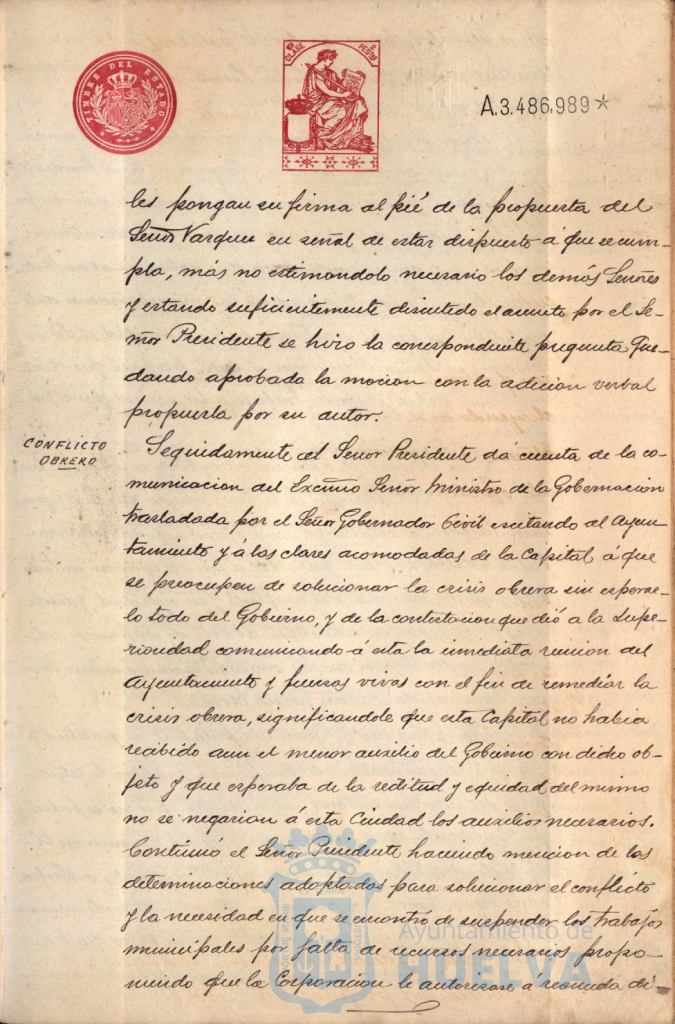 TIMBRE DEL ESTADO
CLASE
PESTAS
A.3.486,989*
les pongan su firma al pié de la propuesta del
Señor Vazquez en señal de estar dispuesto á que se cum-
pla, más no estimandolo necesario los demás Señores
y estando suficientemente discutido el asunto por el Se-
ñor Presidente se hizo la correspondiente pregunta que-
dando aprobada la mocion con la adicion verbal
propuesta por su autor.
CONFLICTO
OBRERO
Seguidamente el Señor Presidente dá cuenta de la co-
municacion del Excmo Señor Ministro de la Gobernacion
trasladada por el Señor Gobernador Civil escitando al Ayun-
tamiento y á las clases acomodadas de la Capital á que
se preocupen de solucionar la crisis obrera sin esperar-
lo todo del Gobierno, y de la contestacion que dió a la Supe-
rioridad comunicando á esta la inmediata reunion del
Ayuntamiento y fuerzas vivas con el fin de remediar la
crisis obrera, significandole que esta Capital no habia
recibido aun el menor auxilio del Gobierno con dicho ob-
jeto y que esperaba de la rectitud y equidad del mismo
no se negarian á esta Ciudad los auxilios necesarios.
Continuó el Señor Presidente haciendo mencion de las
determinaciones adoptadas para solucionar el conflicto
y la necesidad en que se encontró de suspender los trabajos
municipales por falta de recursos necesarios propo-
niendo que la Corporacion le autorizase á
Ayuntamiento de
HUELVA